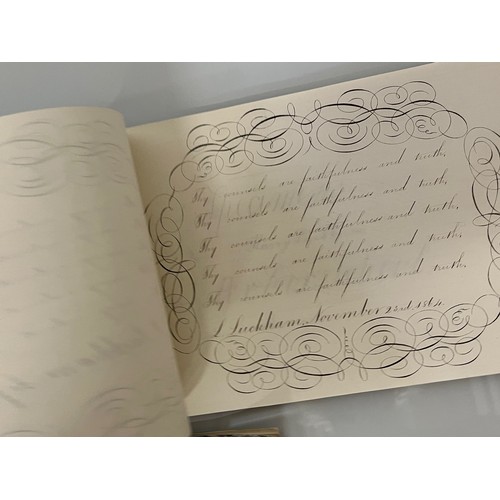 Thy counsels are faithfulness and truth,
Thy counsels are faithfulness and truth,
Thy counsels are faithfulness and truth,
Thy counsels are faithfulness and truth,
Thy counsels are faithfulness and truth,
Luckham, November 23rd, 1864.